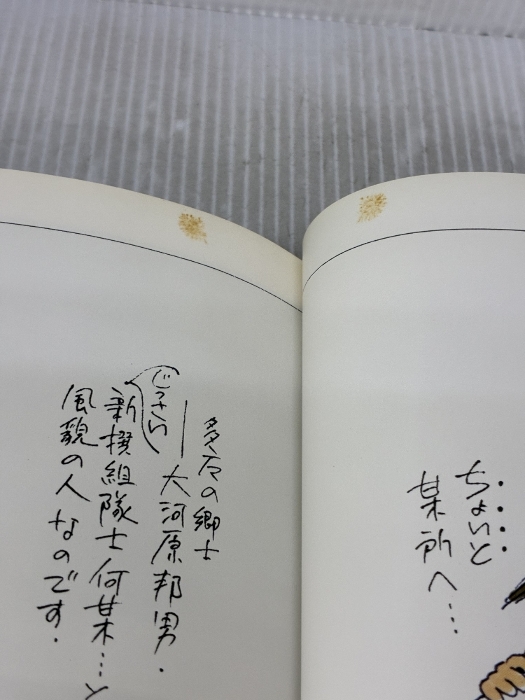 ちょいと
某所へ…
多摩の郷士
―大河原邦男.
じっさい
新撰組隊士何某…と
風貌の人なのです.